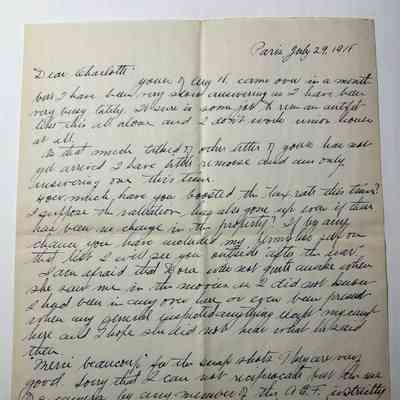 Paris July 29, 1918
Dear Charlotte:
Yours of 11, came over in a month
but I have been very slow answering as I have been
very busy lately. It sure is some job to run an outfit
like this all alone and I don't work union hours
at all.
As that much talked of other letter of yours has not
yet arrived I have little remorse and am only
answering one this time.
How much have you boosted the tax rate this time?
I suppose the valuation has also gone up even if there
has been no change in the property? If by any
chance you have included my on
that list I will see you outside "after the war".
I am afraid that Dora was not quite awake when
she saw me in the movies as I did not know
I had been in any over here or even been present
when any general inspected anything except my camp
here and I hope she did not hear what he said
then.
"Merci beaucoup" for the snap shots. They are very
good. Sorry that I can not reciprocate but the use
of a camera by any member of the A.E.F. is strictly